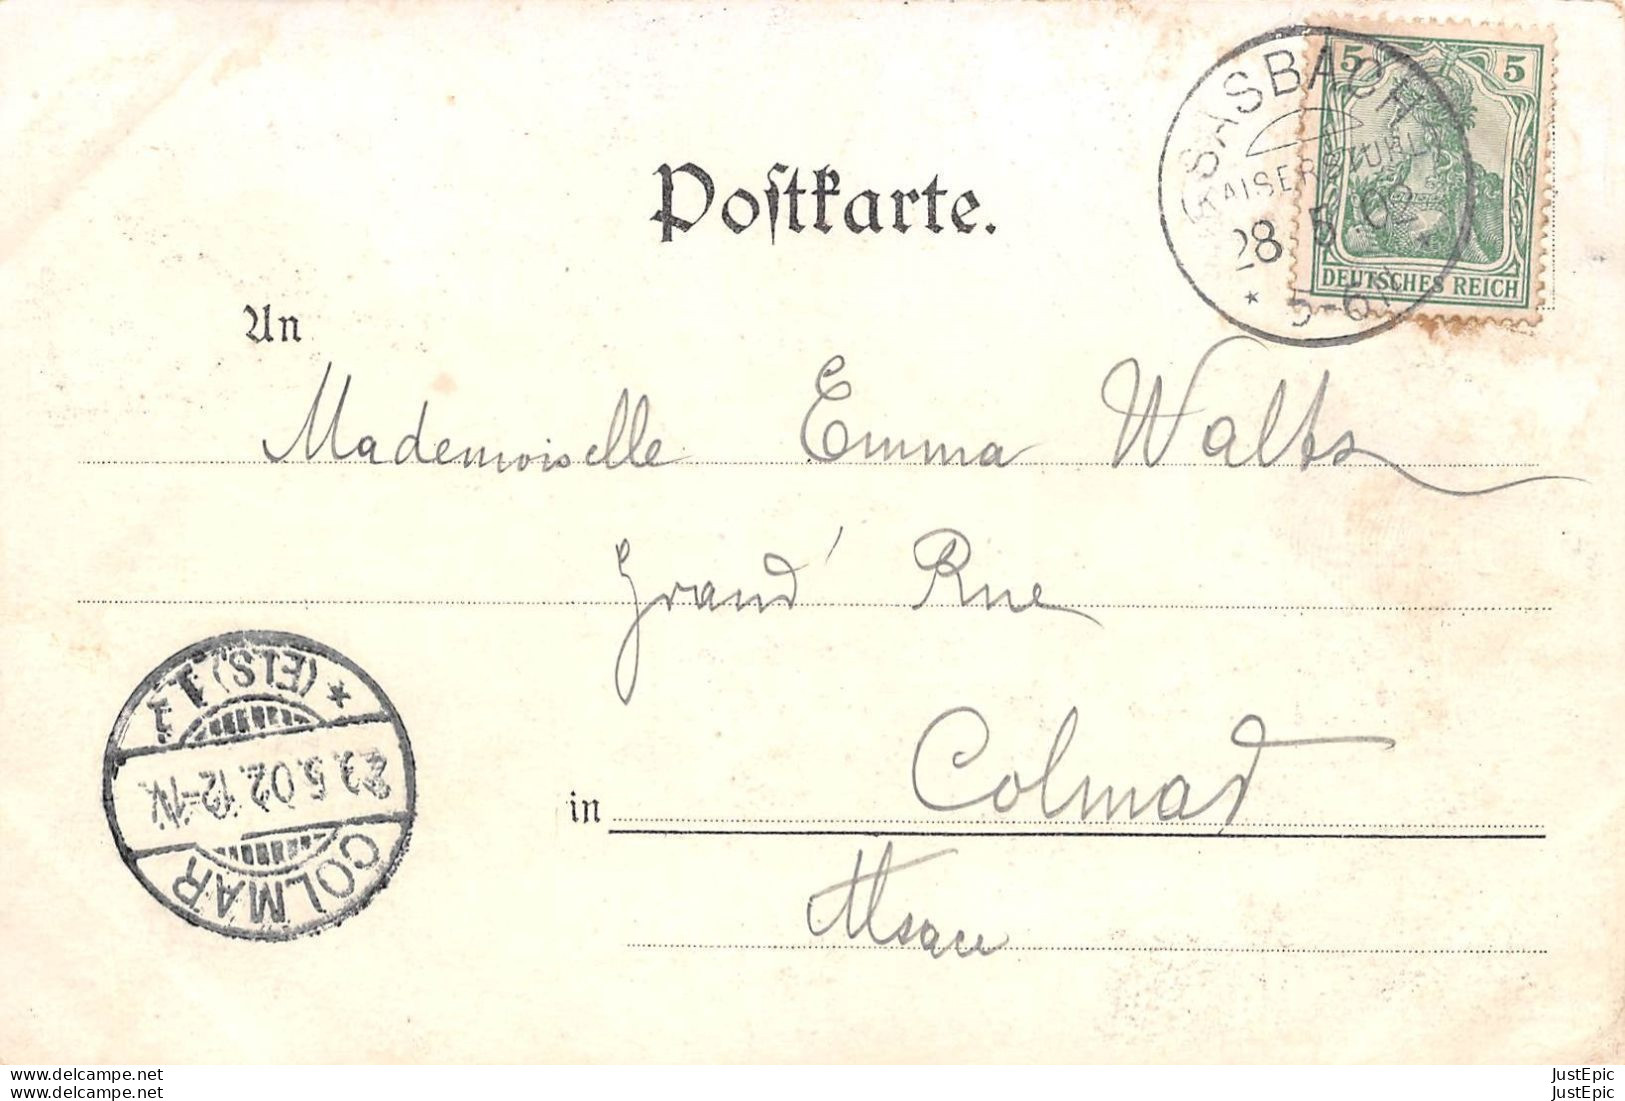 5 5
SASBACH
(KAISERSTUHL)
28.5.02
5-6N
DEUTSCHES REICH
Postkarte.
An
Mademoiselle Emma Walts
Grand' Rue
in Colmar
Alsace
COLMAR
29.5.02. 12-1N.
* (ELS) 1.
www.delcampe.net
www.delcampe.net
JustEpic
JustEpic